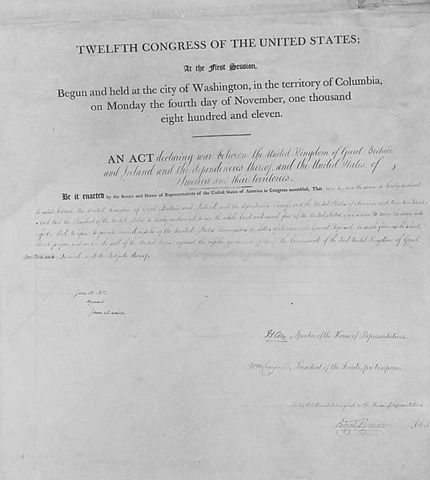 TWELFTH CONGRESS OF THE UNITED STATES;
At the First Session,
Begun and held at the city of Washington, in the territory of Columbia,
on Monday the fourth day of November, one thousand
eight hundred and eleven.
AN ACT declaring war between the United Kingdom of Great Britain
and Ireland and the dependencies thereof, and the United States of
America and their territories.
Be it enacted by the Senate and House of Representatives of the United States of America in Congress assembled, That war be, and the same is hereby declared
to exist between the United Kingdom of Great Britain and Ireland and the dependencies thereof, and the United States of America and their territories;
and that the President of the United States is hereby authorized to use the whole land and naval force of the United States to carry the same into
effect, and to issue to private armed vessels of the United States commissions or letters of marque and general reprisal, in such form as he shall
think proper, and under the seal of the United States, against the vessels, goods, and effects of the Government of the said United Kingdom of Great
Britain and Ireland, and the subjects thereof.
June 18. 1812
Approved
James Madison
H Clay Speaker of the House of Representatives.
Wm H Crawford, President of the Senate, pro tempore.
I certify that this act did originate in the House of Representatives
Clerk